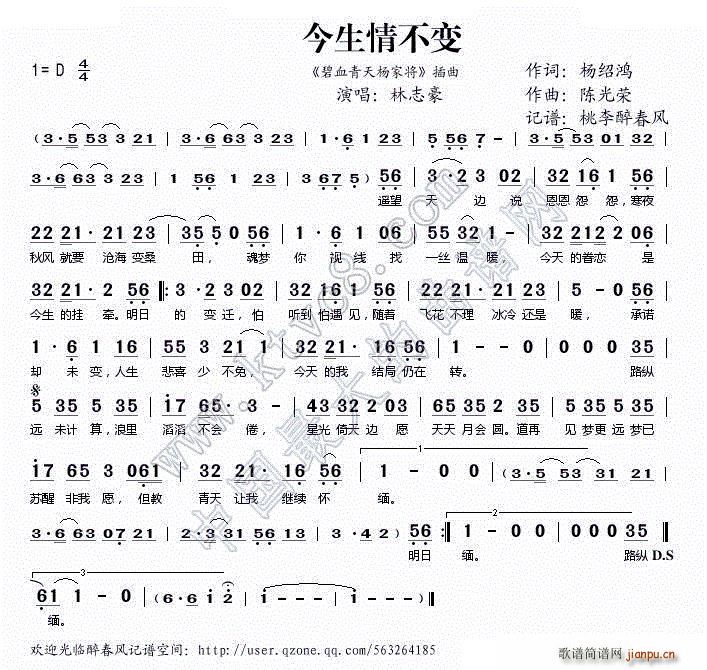 今生情不变
1=D 4/4
《碧血青天杨家将》插曲
演唱：林志豪
作词：杨绍鸿
作曲：陈光荣
记谱：桃李醉春风
(3·5 53 3 21 | 3·6 63 3 23 | 1·6 1 23 | 5 56 7 - | 3·5 53 01 32
3·6 63 3 23 | 1 51 23 | 3 67 5) 56 | 3·2 3 02 | 32 16·1 56
遥望 天 边说 恩恩 怨怨，寒夜
22 21·21 23 | 35 5 0 56 | 1·6 1 06 | 55 32 1 - | 32 212 2 06
秋风 就要 沧海 变桑 田，魂梦 你 视线 找 一丝 温暖，今天的眷恋 是
32 21·2 1 56 |: 3·2 3 02
今生的挂 牵。明日 的 变 迁，怕 听到 怕遇 见，随着 飞花 不理 冰冷 还是 暖，承诺
1·6 1 56 | 55 3 21 - | 32 21·1 16 | 1 - 0 0 | 0 0 0 35
却 未 变，人生 悲喜 少 不免， 今天 的我 结局 仍在 转。 路纵
5 35 5 35 | 17 65·3 - | 43 32 2 03
远 未计 算，浪里 滔滔 不会 倦， 星光 倚天 边愿 天天 月会 圆。道再 见 梦更 远梦 已
17 65 3 061 | 32 21·16 56 | 1 - 0 0 | (3·5 53 31 21
苏醒 非我 愿，但教 青天 让我 继续 怀 缅。
3·6 63 07 21 | 2·3 31 56 56 | 3·5 53 21 51 | 3·42) 56 :| 1 - 0 0 | 0 0 0 35
明日 缅。 路纵 D.S
61 1 - 0 | (6·6 1 2 | 1 - - - | 1 - - -)
缅。
欢迎光临醉春风记谱空间：http://user.qzone.qq.com/563264185
www.ktvc8.com
中国最大的曲谱网
歌谱简谱网
jianpu.cn